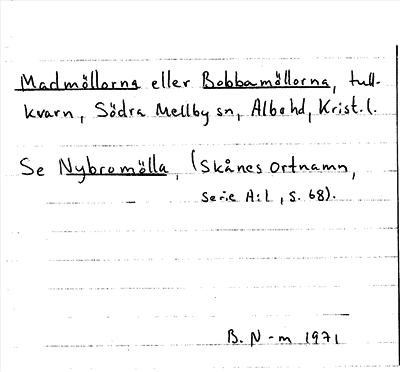 Madmöllorna eller Bobbamöllorna, tull-
kvarn, Södra Mellby sn, Albo hd, Krist. l.
Se Nybromölla, (Skånes ortnamn,
serie A:1, s. 68).
B. N-m 1971